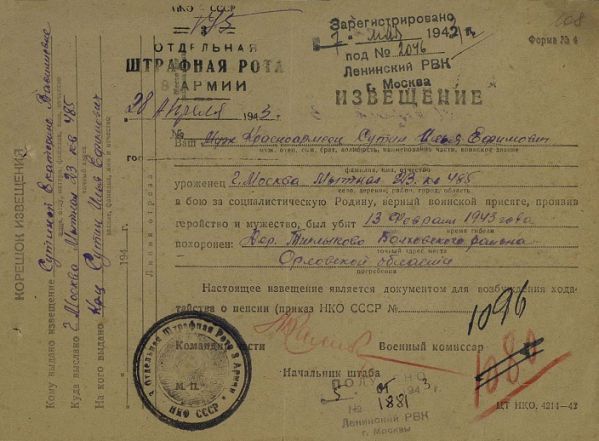 КОРЕШОК ИЗВЕЩЕНИЯ
Кому выдано извещение Сутиной Екатерине
Куда выслано г. Москва Мытная 23 кв 485
На кого выдано Кра Сутин Илья Ефимович
194 г.
Линия отреза
НКО СССР
ОТДЕЛЬНАЯ
ШТРАФНАЯ РОТА
АРМИИ
28 Апреля 1943 г.
№
гор
Зарегистрировано
7 мая 1942 г.
под № 2046
Ленинский РВК
г. Москва
Форма № 4
ИЗВЕЩЕНИЕ
Ваш Муж Красноармеец Сутин Илья Ефимович
муж, отец, сын, брат, должность, наименование части, воинское звание
фамилия, имя, отчество
уроженец г. Москва Мытная 23. кв 485
село, деревня, район, город, область
в бою за социалистическую Родину, верный воинской присяге, проявив
геройство и мужество, был убит 13 февраля 1943 года
время гибели
похоронен: Дер. Болховского района
точный адрес места
Орловской области
погребения
Настоящее извещение является документом для возбуждения хода-
тайства о пенсии (приказ НКО СССР №
1096
1080
Командир части
Военный комиссар
М. П.
Начальник штаба
Отдельная Штрафная Рота 3 Армии
НКО СССР
ПОЛУЧЕНО
1943 г.
№ 1881
Ленинский РВК
г. Москвы
ЦТ НКО, 4214—42